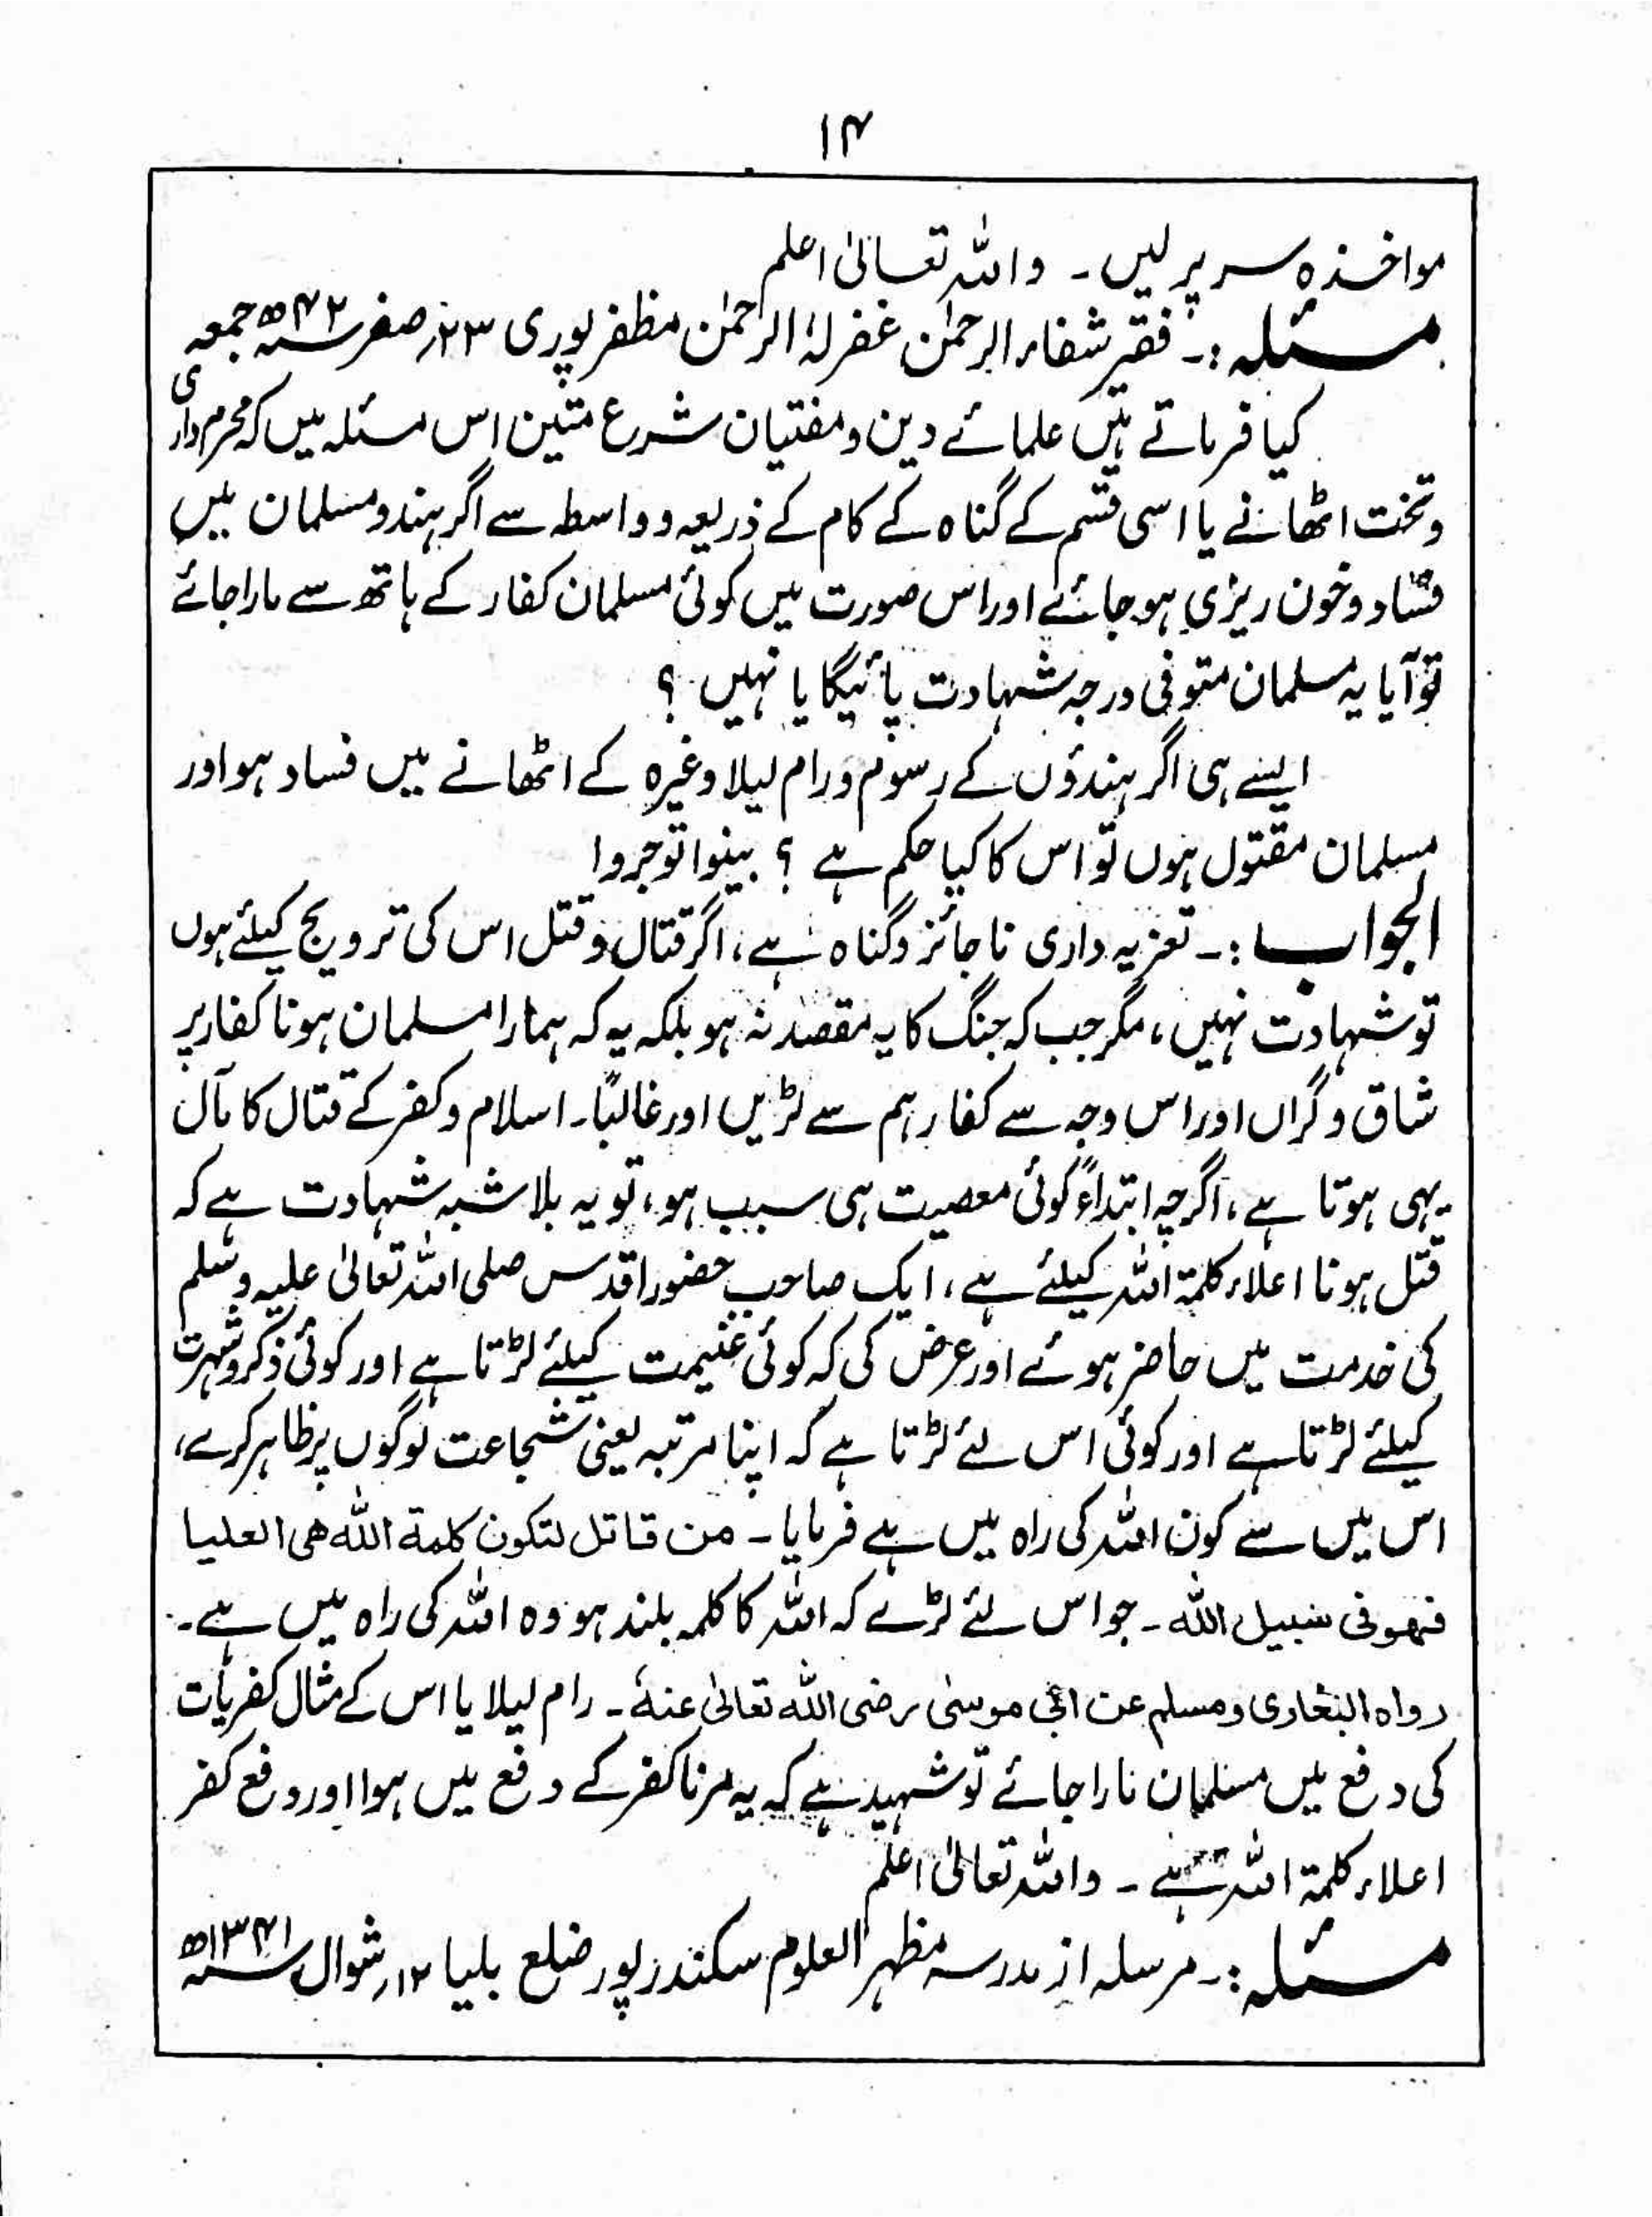 ۱۴
مواخذہ سر پر لیں ۔ واللہ تعالیٰ اعلم
مسئلہ :۔ فقیر شفاء الرحمٰن غفر لہٗ الرحمٰن مظفر پوری ۲۳؍ صفر سنہ ۴۲ھ جمعہ
کیا فرماتے ہیں علمائے دین و مفتیان شرع متین اس مسئلہ میں کہ محرم داری
و تخت اٹھانے یا اسی قسم کے گناہ کے کام کے ذریعہ و واسطہ سے اگر ہندو مسلمان میں
فساد و خون ریزی ہو جائے اور اس صورت میں کوئی مسلمان کفار کے ہاتھ سے مارا جائے
تو آیا یہ مسلمان متوفی درجہ شہادت پائیگا یا نہیں ؟
ایسے ہی اگر ہندؤں کے رسوم و رام لیلا وغیرہ کے اٹھانے میں فساد ہو اور
مسلمان مقتول ہوں تو اس کا کیا حکم ہے ؟ بینوا توجروا
الجواب :۔ تعزیہ داری ناجائز و گناہ ہے، اگر قتال و قتل اس کی ترویج کیلئے ہوں
تو شہادت نہیں، مگر جب کہ جنگ کا یہ مقصد نہ ہو بلکہ یہ کہ ہمارا مسلمان ہونا کفار پر
شاق و گراں اور اس وجہ سے کفار ہم سے لڑیں اور غالبًا۔ اسلام و کفر کے قتال کا مآل
یہی ہوتا ہے، اگرچہ ابتداءً کوئی معصیت ہی سبب ہو، تو یہ بلا شبہ شہادت ہے کہ
قتل ہونا اعلاء کلمۃ اللہ کیلئے ہے، ایک صاحب حضور اقدس صلی اللہ تعالیٰ علیہ وسلم
کی خدمت میں حاضر ہوئے اور عرض کی کہ کوئی غنیمت کیلئے لڑتا ہے اور کوئی ذکر و شہرت
کیلئے لڑتا ہے اور کوئی اس لئے لڑتا ہے کہ اپنا مرتبہ یعنی شجاعت لوگوں پر ظاہر کرے،
اس میں سے کون اللہ کی راہ میں ہے فرمایا ۔ من قاتل لتکون کلمۃ اللہ ھی العلیا
فھو فی سبیل اللہ ۔ جو اس لئے لڑے کہ اللہ کا کلمہ بلند ہو وہ اللہ کی راہ میں ہے ۔
رواہ البخاری و مسلم عن ابی موسیٰ رضی اللہ تعالیٰ عنہٗ ۔ رام لیلا یا اس کے مثال کفریات
کی دفع میں مسلمان مارا جائے تو شہید ہے کہ یہ مرنا کفر کے دفع میں ہوا اور دفع کفر
اعلاء کلمۃ اللہ ہے ۔ واللہ تعالیٰ اعلم
مسئلہ :۔ مرسلہ از مدرسہ مظہر العلوم سکندر پور ضلع بلیا ۱۲؍ شوال سنہ ۱۳۴۱ھ